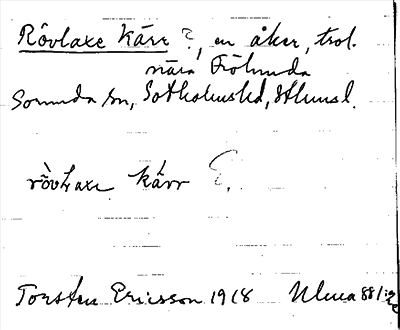 Rövlaxe kärr ?, en åker, trol.
nära Frölunda
Sorunda sn, Sotholmshd, Sthmsl.
rövLaxe kärr E.
Torsten Ericsson 1918 Ulma 88/:2